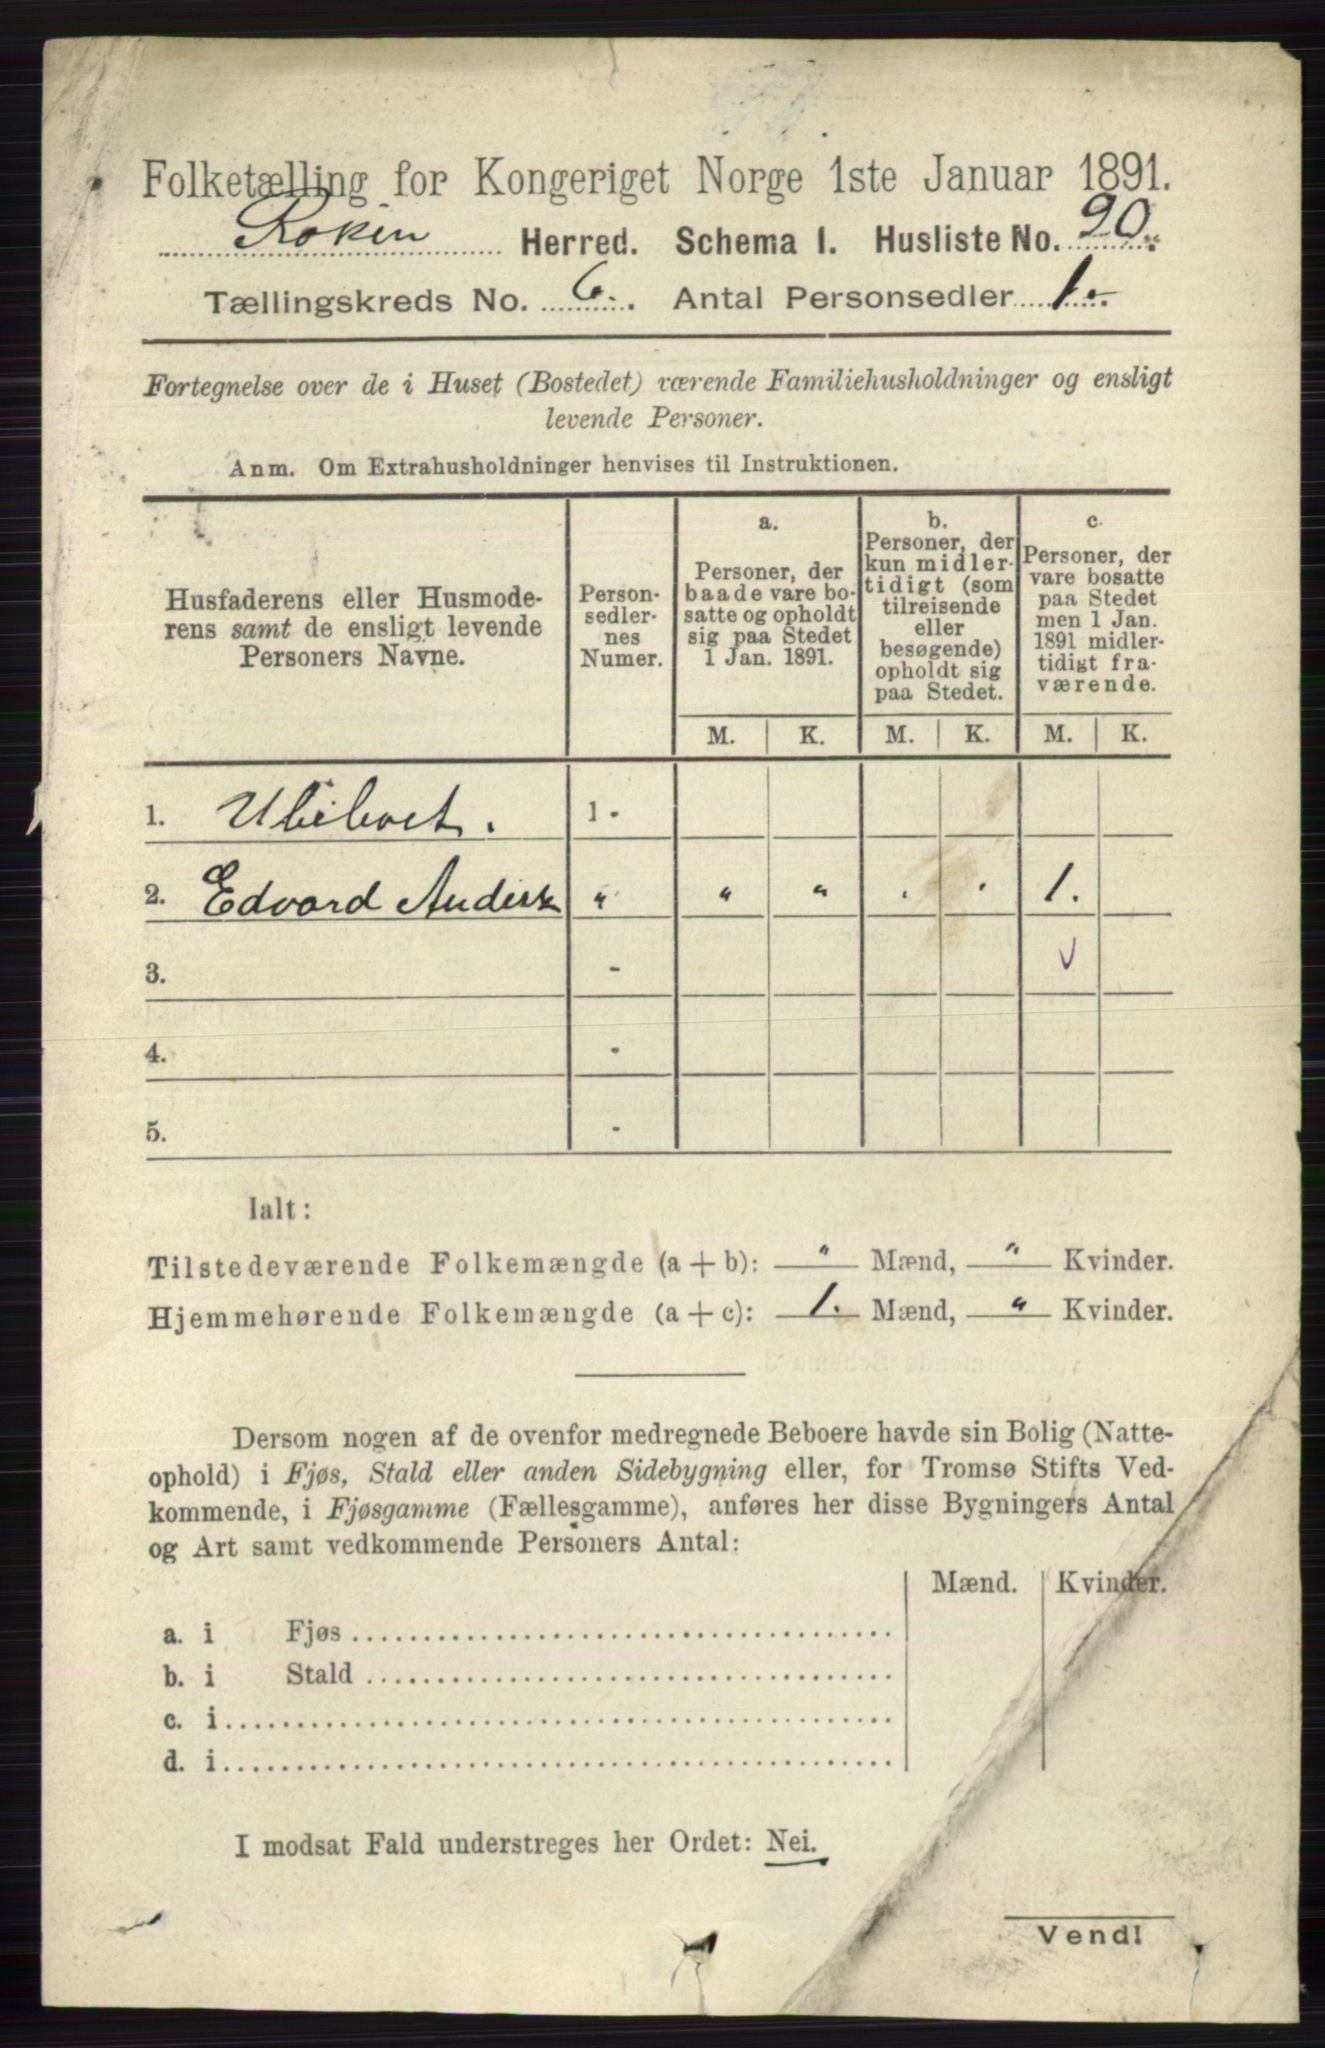 Folketælling for Kongeriget Norge 1ste Januar 1891.
Røken Herred. Schema 1. Husliste No. 20.
Tællingskreds No. 6. Antal Personsedler 1.
Fortegnelse over de i Huset (Bostedet) værende Familiehusholdninger og ensligt
levende Personer.
Anm. Om Extrahusholdninger henvises til Instruktionen.
Husfaderens eller Husmode-
rens samt de ensligt levende
Personers Navne.
Person-
sedler-
nes
Numer.
a.
Personer, der
baade vare bo-
satte og opholdt
sig paa Stedet
1 Jan. 1891.
b.
Personer, der
kun midler-
tidigt (som
tilreisende
eller
besøgende)
opholdt sig
paa Stedet.
c.
Personer, der
vare bosatte
paa Stedet
men 1 Jan.
1891 midler-
tidigt fra-
værende.
M. K. M. K. M. K.
1. Ubeboet. 1 -
2. Edvard Anders " " " . . 1.
3. -
4. -
5. -
Ialt:
Tilstedeværende Folkemængde (a + b): " Mænd, " Kvinder.
Hjemmehørende Folkemængde (a + c): 1. Mænd, " Kvinder.
Dersom nogen af de ovenfor medregnede Beboere havde sin Bolig (Natte-
ophold) i Fjøs, Stald eller anden Sidebygning eller, for Tromsø Stifts Ved-
kommende, i Fjøsgamme (Fællesgamme), anføres her disse Bygningers Antal
og Art samt vedkommende Personers Antal:
Mænd. Kvinder.
a. i Fjøs
b. i Stald
c. i
d. i
I modsat Fald understreges her Ordet: Nei.
Vend!